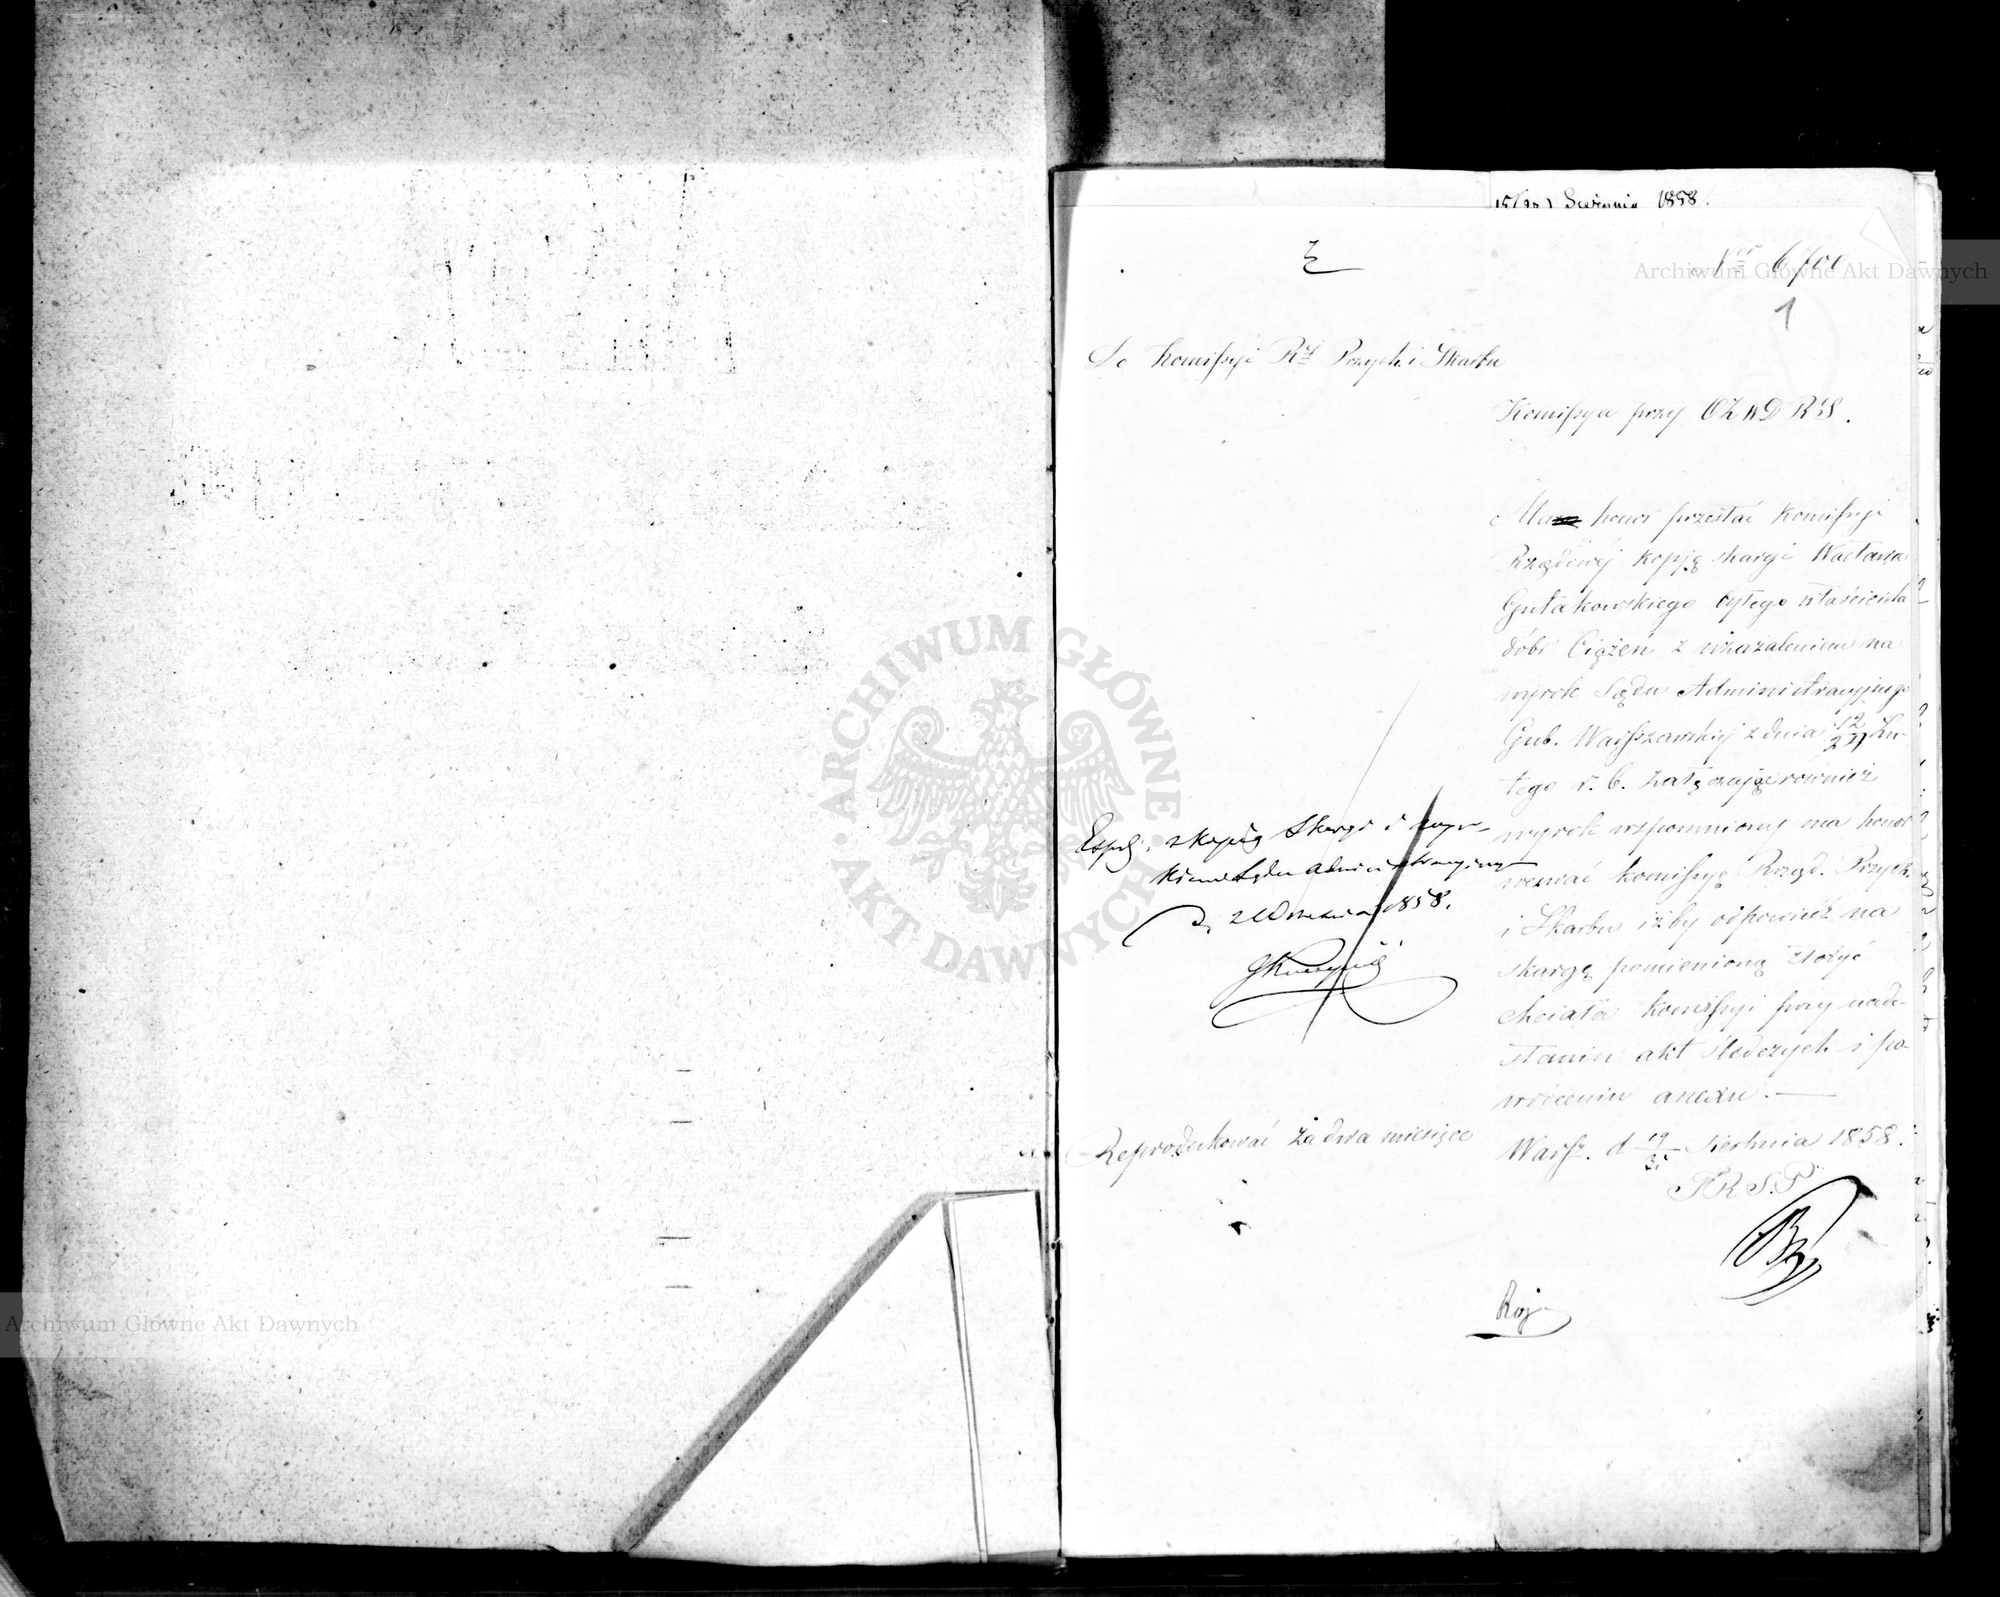 Sierpnia 1858.
Nr 6700
1
Do Komissyi Rz. Przych. i Skarbu
Komissya przy OZWDRS.
Ma honor przesłać Komissyi
Rządowéj kopją skargi Wacława
Gutakowskiego byłego właściciela
dóbr Ciążeń z użazaleniem na
wyrok Sądu Administracyjnego
Gub. Warszawskiéj z dnia 12/24 Lu-
tego r. b. załączając również
wyrok wspomniony ma honor
wezwać Komissyą Rząd. Przych.
i Skarbu iżby odpowiedź na
skargę pomienioną złożyć
chciała Komissyi przy nade-
słaniu akt śledczych i po-
wróceniu anexu. —
Warsz. d 19/31 Sierpnia 1858.
Exped. z kopią Skargi i wyro-
kiem Sądu administracyjnego
d. 2 Września 1858.
Reprodukować za dwa miesiące
ARCHIWUM GŁÓWNE AKT DAWNYCH
Archiwum Główne Akt Dawnych
Archiwum Główne Akt Dawnych